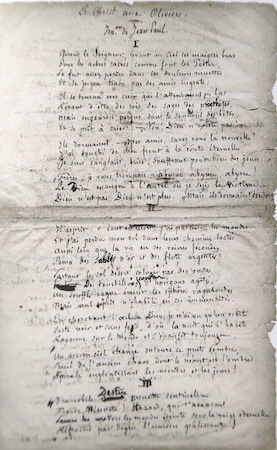 Le Christ aux Oliviers
Im.on de Jean Paul.
I
Quand le Seigneur, levant au ciel ses maigres bras
Sous les arbres sacrés, comme font les Poètes,
Se fut assez perdu dans ses douleurs muettes
Et se jugea trahi par des amis ingrats;
Il se tourna vers ceux qui l'attendaient en bas
Rêvant d'être des rois, des sages des prophètes
Mais engourdis, perdus dans le sommeil des bêtes
Et se prit à crier: Non, Dieu n'existe pas
Ils dormaient. Mes amis, savez vous la nouvelle?
J'ai touché de mon front à la voûte éternelle
Je suis sanglant, brisé, souffrant pour bien des jours!
Frères, je vous trompais abyme, abyme abyme
Le Dieu manque à l'autel où je suis la victime
Dieu n'est pas, Dieu n'est plus. Mais ils dormaient toujours
II
Il reprit: tout est mort! j'ai parcouru les mondes
Et j'ai perdu mon vol dans leurs chemins lactés
Aussi loin que la vie en ses veines fécondes
des sables d'or et des flots argentés;
Partout le sol désert côtoyé par des ondes
Des tourbillons d'océans agités
Un souffle vague émeut les sphères vagabondes
Mais nul esprit n'habite en ces immensités.
En cherchant l'oeil de Dieu, je n'ai vu qu'un orbite
Vaste noir et sans fond, d'où la nuit qui l'habite
Rayonne sur le Monde et s'épaissit toujours
Un arc en ciel étrange entoure ce puits sombre
Seuil de l'ancien chaos dont le néant est l'ombre
Spirale engloutissant les mondes et les jours!
III
Immobile Destin muette sentinelle
Froide Nécessité! Hazard, qui t'avançant
Parmi les mondes morts sous la neige éternelle
Refroidis par degrés l'univers pâlissant!